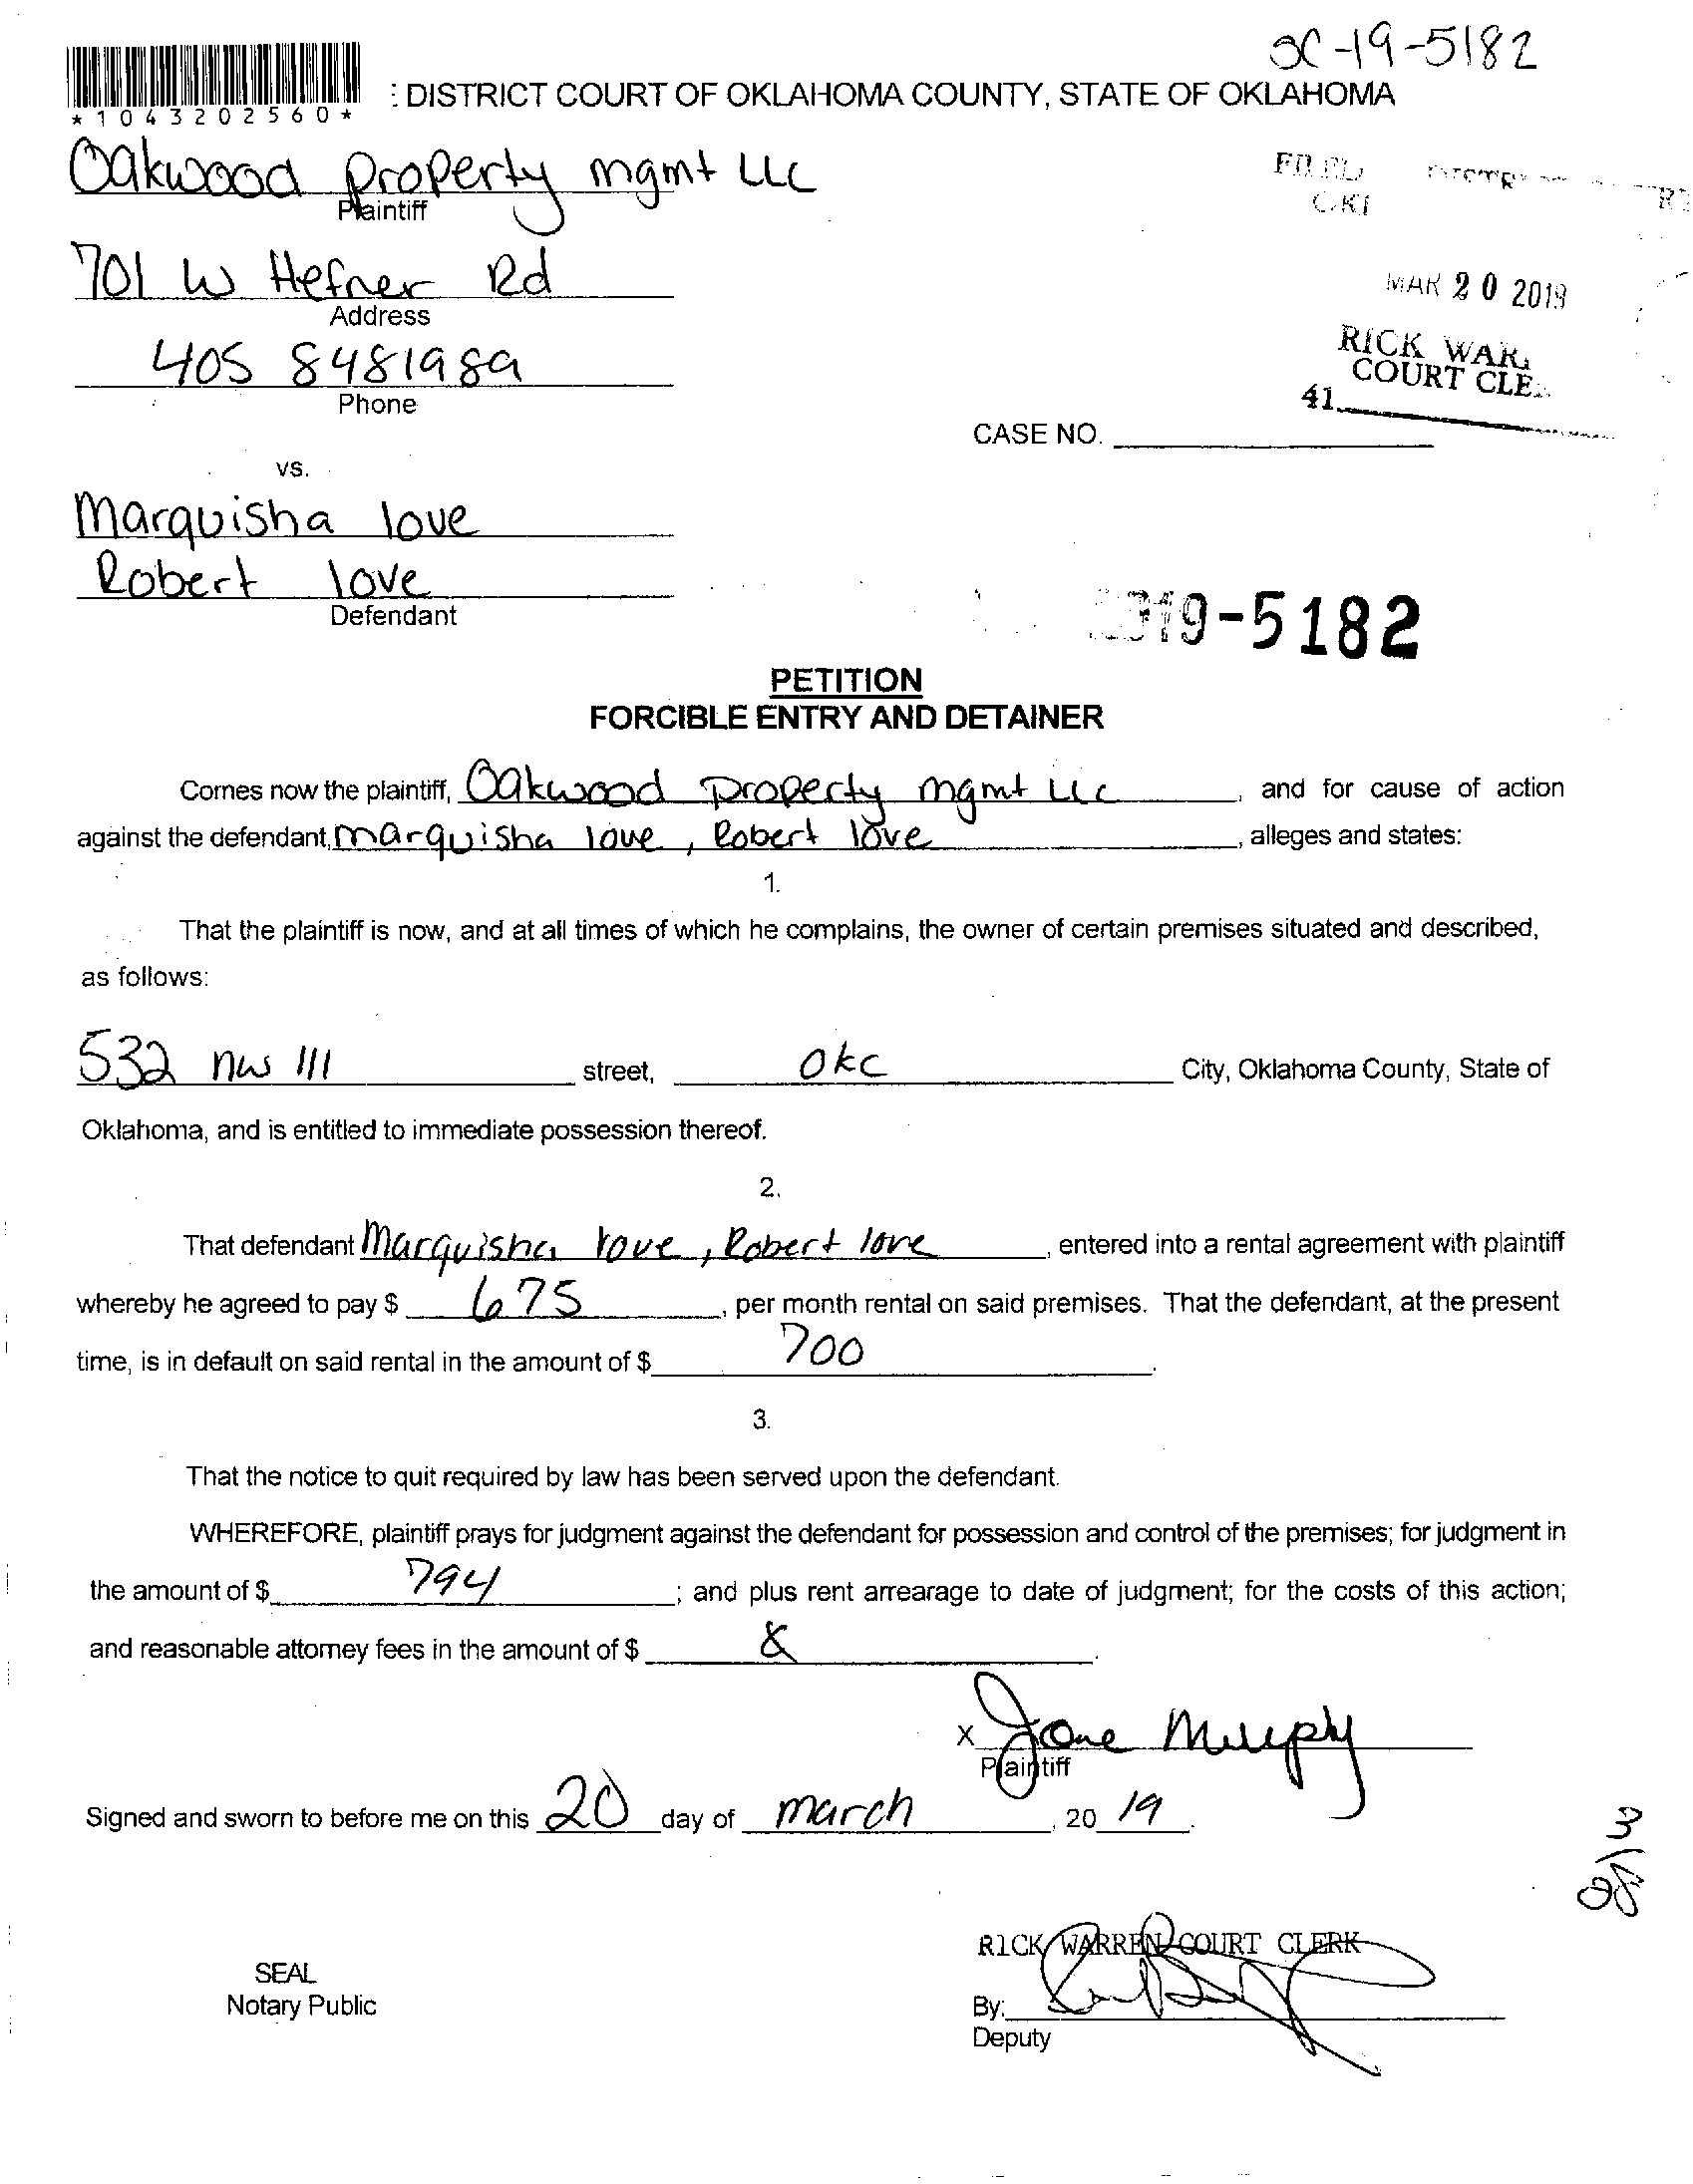 SC-19-5182
: DISTRICT COURT OF OKLAHOMA COUNTY, STATE OF OKLAHOMA
* 1 0 4 3 2 0 2 5 6 0 *
Oakwood Property mgmt LLC
Plaintiff
701 W Hefner Rd
Address
405 8481989
Phone
MAR 20 2019
RICK WAR
COURT CLE
41
CASE NO.
vs.
Marquisha love
Robert love
Defendant
19-5182
PETITION
FORCIBLE ENTRY AND DETAINER
Comes now the plaintiff, Oakwood property mgmt LLC, and for cause of action
against the defendant, marquisha love, Robert love, alleges and states:
1.
That the plaintiff is now, and at all times of which he complains, the owner of certain premises situated and described,
as follows:
532 nw 111 street, OKC City, Oklahoma County, State of
Oklahoma, and is entitled to immediate possession thereof.
2.
That defendant Marquisha love, Robert love, entered into a rental agreement with plaintiff
whereby he agreed to pay $ 675, per month rental on said premises. That the defendant, at the present
time, is in default on said rental in the amount of $ 700.
3.
That the notice to quit required by law has been served upon the defendant.
WHEREFORE, plaintiff prays for judgment against the defendant for possession and control of the premises; for judgment in
the amount of $ 794; and plus rent arrearage to date of judgment; for the costs of this action;
and reasonable attorney fees in the amount of $
X Jane Murphy
Plaintiff
Signed and sworn to before me on this 20 day of march, 20 19.
RICK WARREN COURT CLERK
SEAL
Notary Public
By:
Deputy